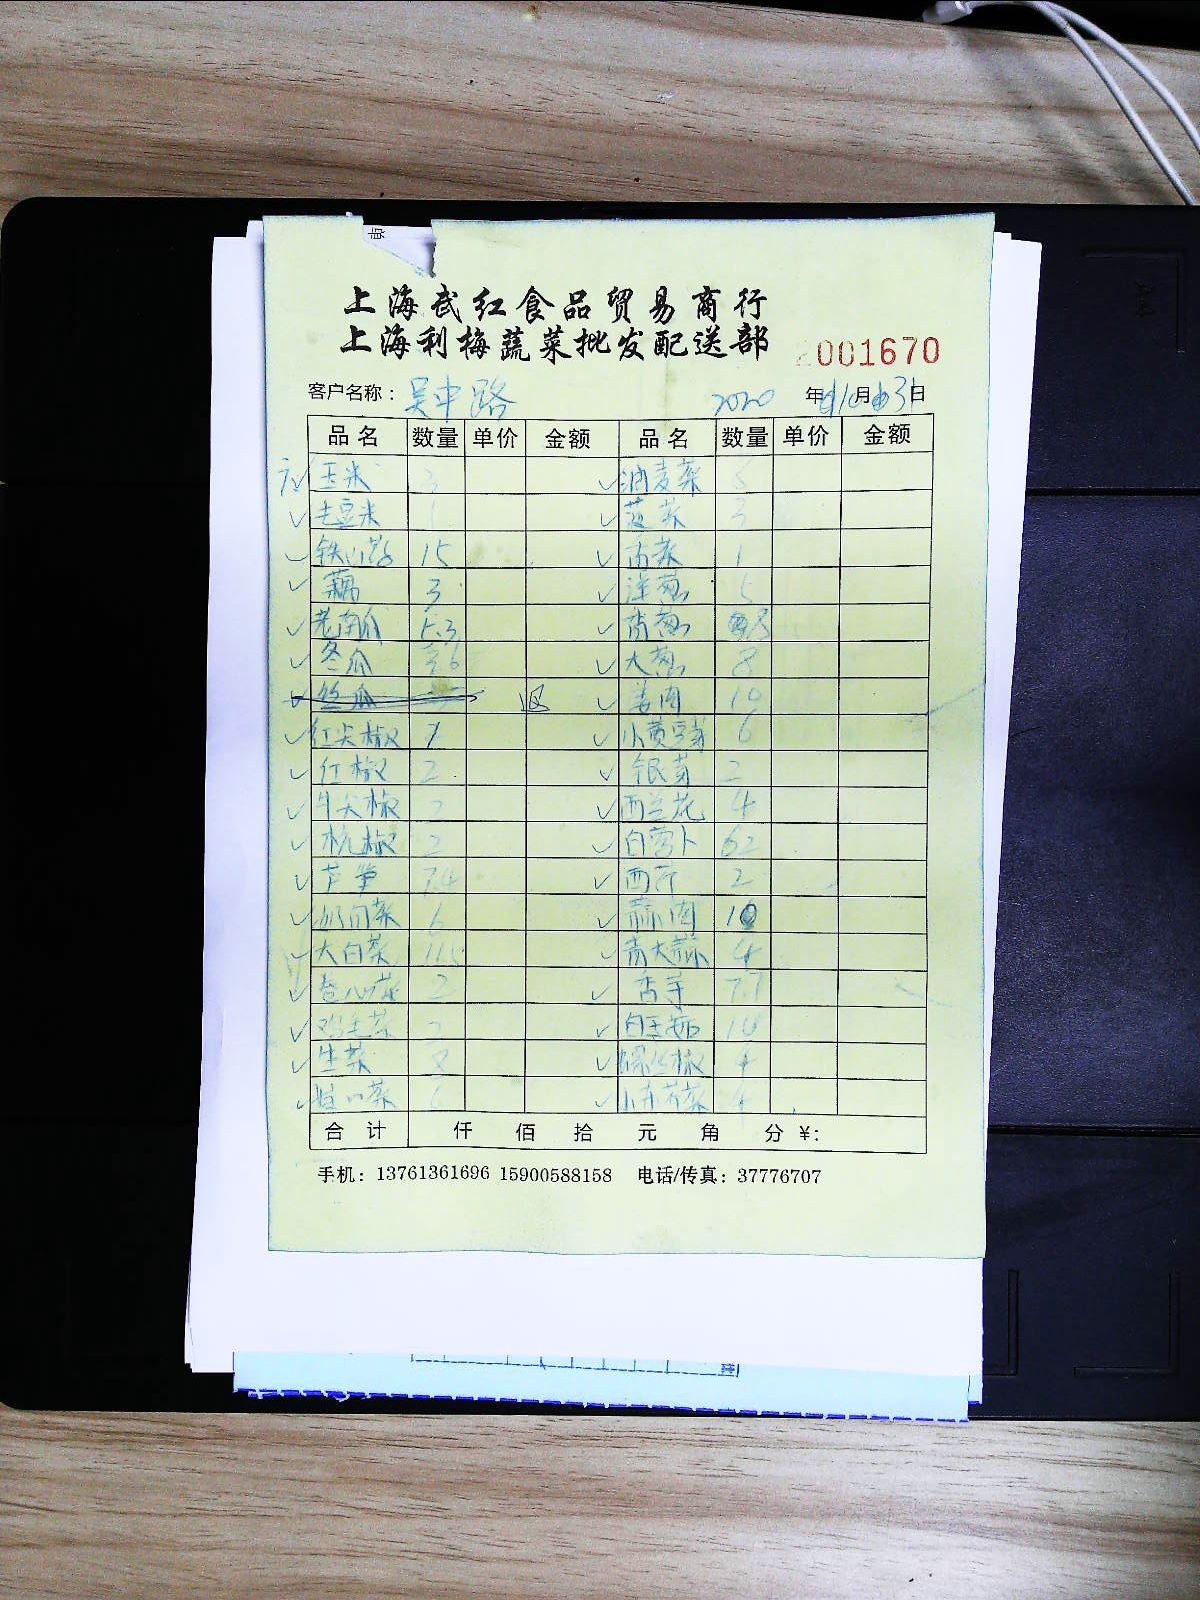 上海武红食品贸易商行
上海利梅蔬菜批发配送部
2001670
客户名称： 吴中路 2020 年 10 月 31 日
品名 数量 单价 金额 品名 数量 单价 金额
玉米 3 油麦菜 5
毛豆米 1 菠菜 3
15 1
藕 3 洋葱 5
老南瓜 5.3 香葱
冬瓜 大葱 8
丝瓜 退 姜肉 10
红尖椒 小黄豆芽 6
红椒 2 银芽 2
牛尖椒 2 西兰花 4
杭椒 2 白萝卜 62
芦笋 7.4 西芹 2
6 蒜肉 10
大白菜 115 青大蒜 4
卷心菜 2 香芋 7.7
鸡毛菜 2 白玉菇 10
生菜 螺丝椒 4
娃娃菜 6 4
合计 仟 佰 拾 元 角 分 ¥:
手机：13761361696 15900588158 电话/传真：37776707